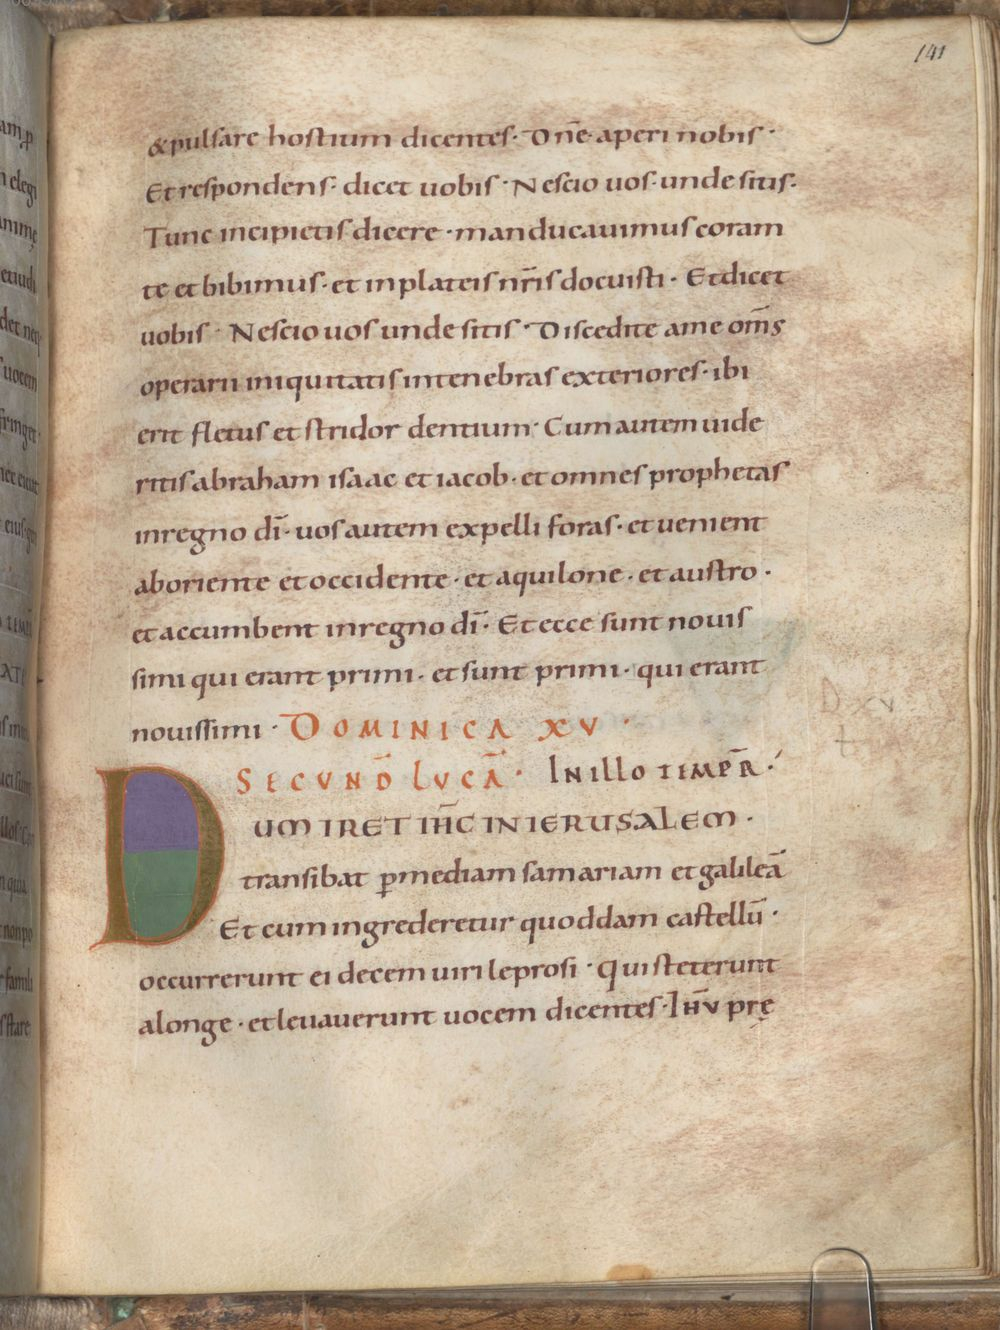 141
&pulsare hostium dicentes· Dn̄e aperi nobis·
Et respondens· dicet uobis· Nescio uos· unde sitis·
Tunc incipietis dicere· manducauimus coram
te et bibimus· et inplateis nr̄is docuisti· Et dicet
uobis· Nescio uos unde sitis· Discedite ame om̄s
operarii iniquitatis intenebras exteriores· ibi
erit fletus et stridor dentium· Cum autem uide
ritis abraham isaac et iacob· et omnes prophetas
inregno dī· uos autem expelli foras· et uenient
aboriente et occidente· et aquilone· et austro·
et accumbent inregno dī· Et ecce sunt nouis
simi qui erant primi· et sunt primi· qui erant
nouissimi· DOMINICA XV·
D XV
SECVND̄ LVCĀ· IN ILLO TEMPR̄·
DUM IRET IHC̄ IN IERUSALEM·
transibat ꝑmediam samariam et galileā
Et cum ingrederetur quoddam castellū·
occurrerunt ei decem uiri leprosi· Qui steterunt
alonge· et leuauerunt uocem dicentes· IHV̄ prę